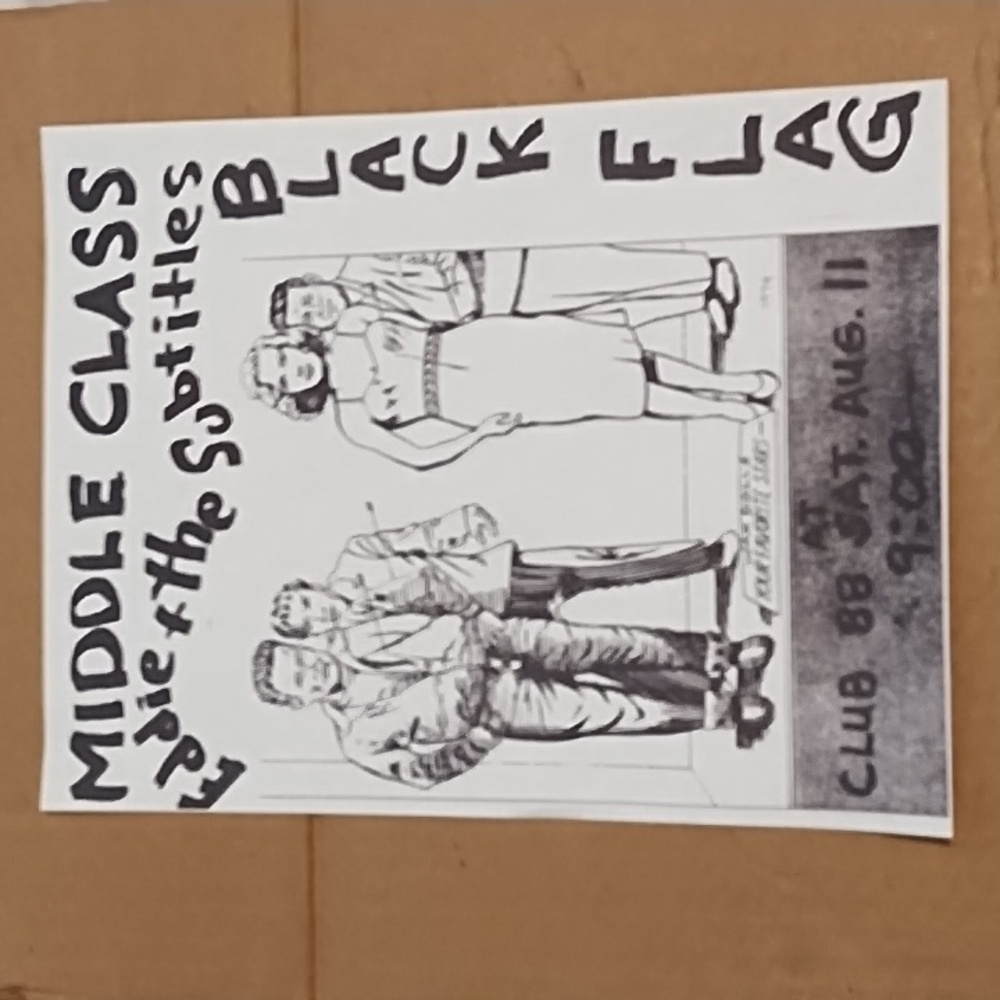 MIDDLE CLASS
Eddie & the Subtitles
BLACK FLAG
YOUR FAVORITE STARS
AT
CLUB 88 SAT. AUG. 11
9:00